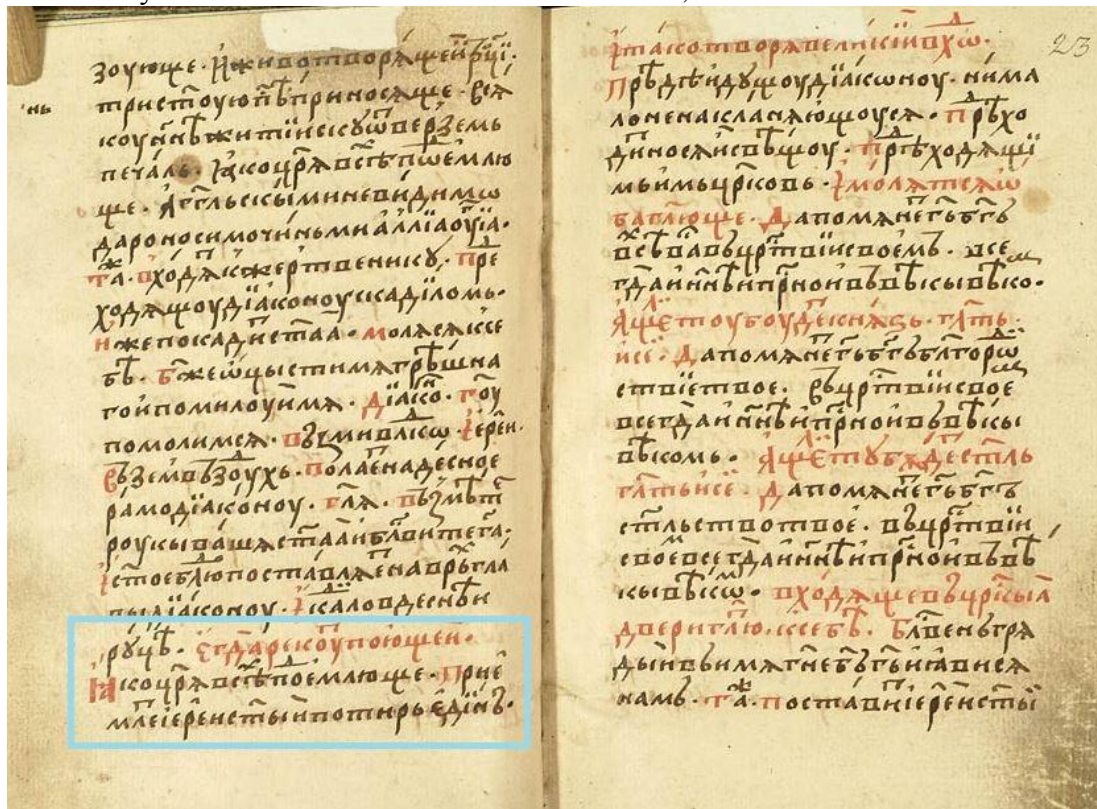 зоующе. И животворѧщеи трⷪ҇ци.
нь
трист҃оую пѣⷭ҇ приносѧще. всѧ
коу нн҃ѣ житіискꙋ ѿверꙁемь
печаль. Ꙗко цр҃ѧ всѣⷯ поⷣемлю
ще. аг҃гльскыми невидимѡ
дароносима чиньми аллилꙋіа.
таⷤ. входѧⷮ к жертвеникꙋ. пре
ходѧщоу діаконоу с кадиломь.
иже покадиⷮ ст҃аа. молѧсѧ к се
бѣ. Бж҃е ѡцысти мѧ грѣшна
го и помилоуи мѧ. діакоⷩ. гоⷭ҇у
помолимсѧ. въꙁми влⷣко. іереи.
вꙁем въꙁдоухь. полагаеⷮ на десное
рамо діаконоу. гл҃ѧ. въꙁмѣте
роукы ваша ст҃аа и блⷭ҇вите гⷭ҇а.
діаконоу. и кадило в деснѣи
рꙋцѣ. Егдⷶа рекоуⷮ поющеи.
Ꙗко цр҃ѧ всѣⷯ поⷣемлюще. прие
млеⷮ іереи ст҃ыи потирь единь.
23
и тако творѧⷮ великіи вхоⷣ.
Прѣⷣидꙋщоу діаконоу. и мало
не наклонѧющоусѧ. прѣⷣхо
диⷮ носѧи свѣщоу. прѣⷣходѧщи
мь имь цр҃ковь. и молѧтсѧ
глⷶголюще. Да помѧнеⷮ гь҃ бг҃ь
всѣⷯ ва въ црⷭ҇твіи своемь. все
гдⷶа и нн҃ѣ и прⷭ҇но и въ вѣкы вѣкоⷨ.
Аще тоу боудеⷮ кнѧꙁь. гл҃ть
исе. Да помѧнеⷮ гь҃ бг҃ь блг҃ороⷣ
ствіе твое. въ црⷭ҇твіи своеⷨ
всегдⷶа и нн҃ѣ и прⷭ҇но и въ вѣкы
вѣкомь. Аще тꙋ бꙋдеⷮ ст҃ль
гл҃ть исе. Да помѧнеⷮ гь҃ бг҃ь
ст҃льство твое. въ црⷭ҇твіи
своеⷨ всегдⷶа и нн҃ѣ и прⷭ҇но и въ вѣ
кы вѣкѡⷨ. входѧще въ црⷭ҇кыѧ
двери гл҃ю. к себѣ. Блⷭ҇вень грѧ
дыи въ имѧ гн҃е бг҃ь гь҃ и ꙗвисѧ
намь. таⷤ. поставиⷮ іереи ст҃ыи